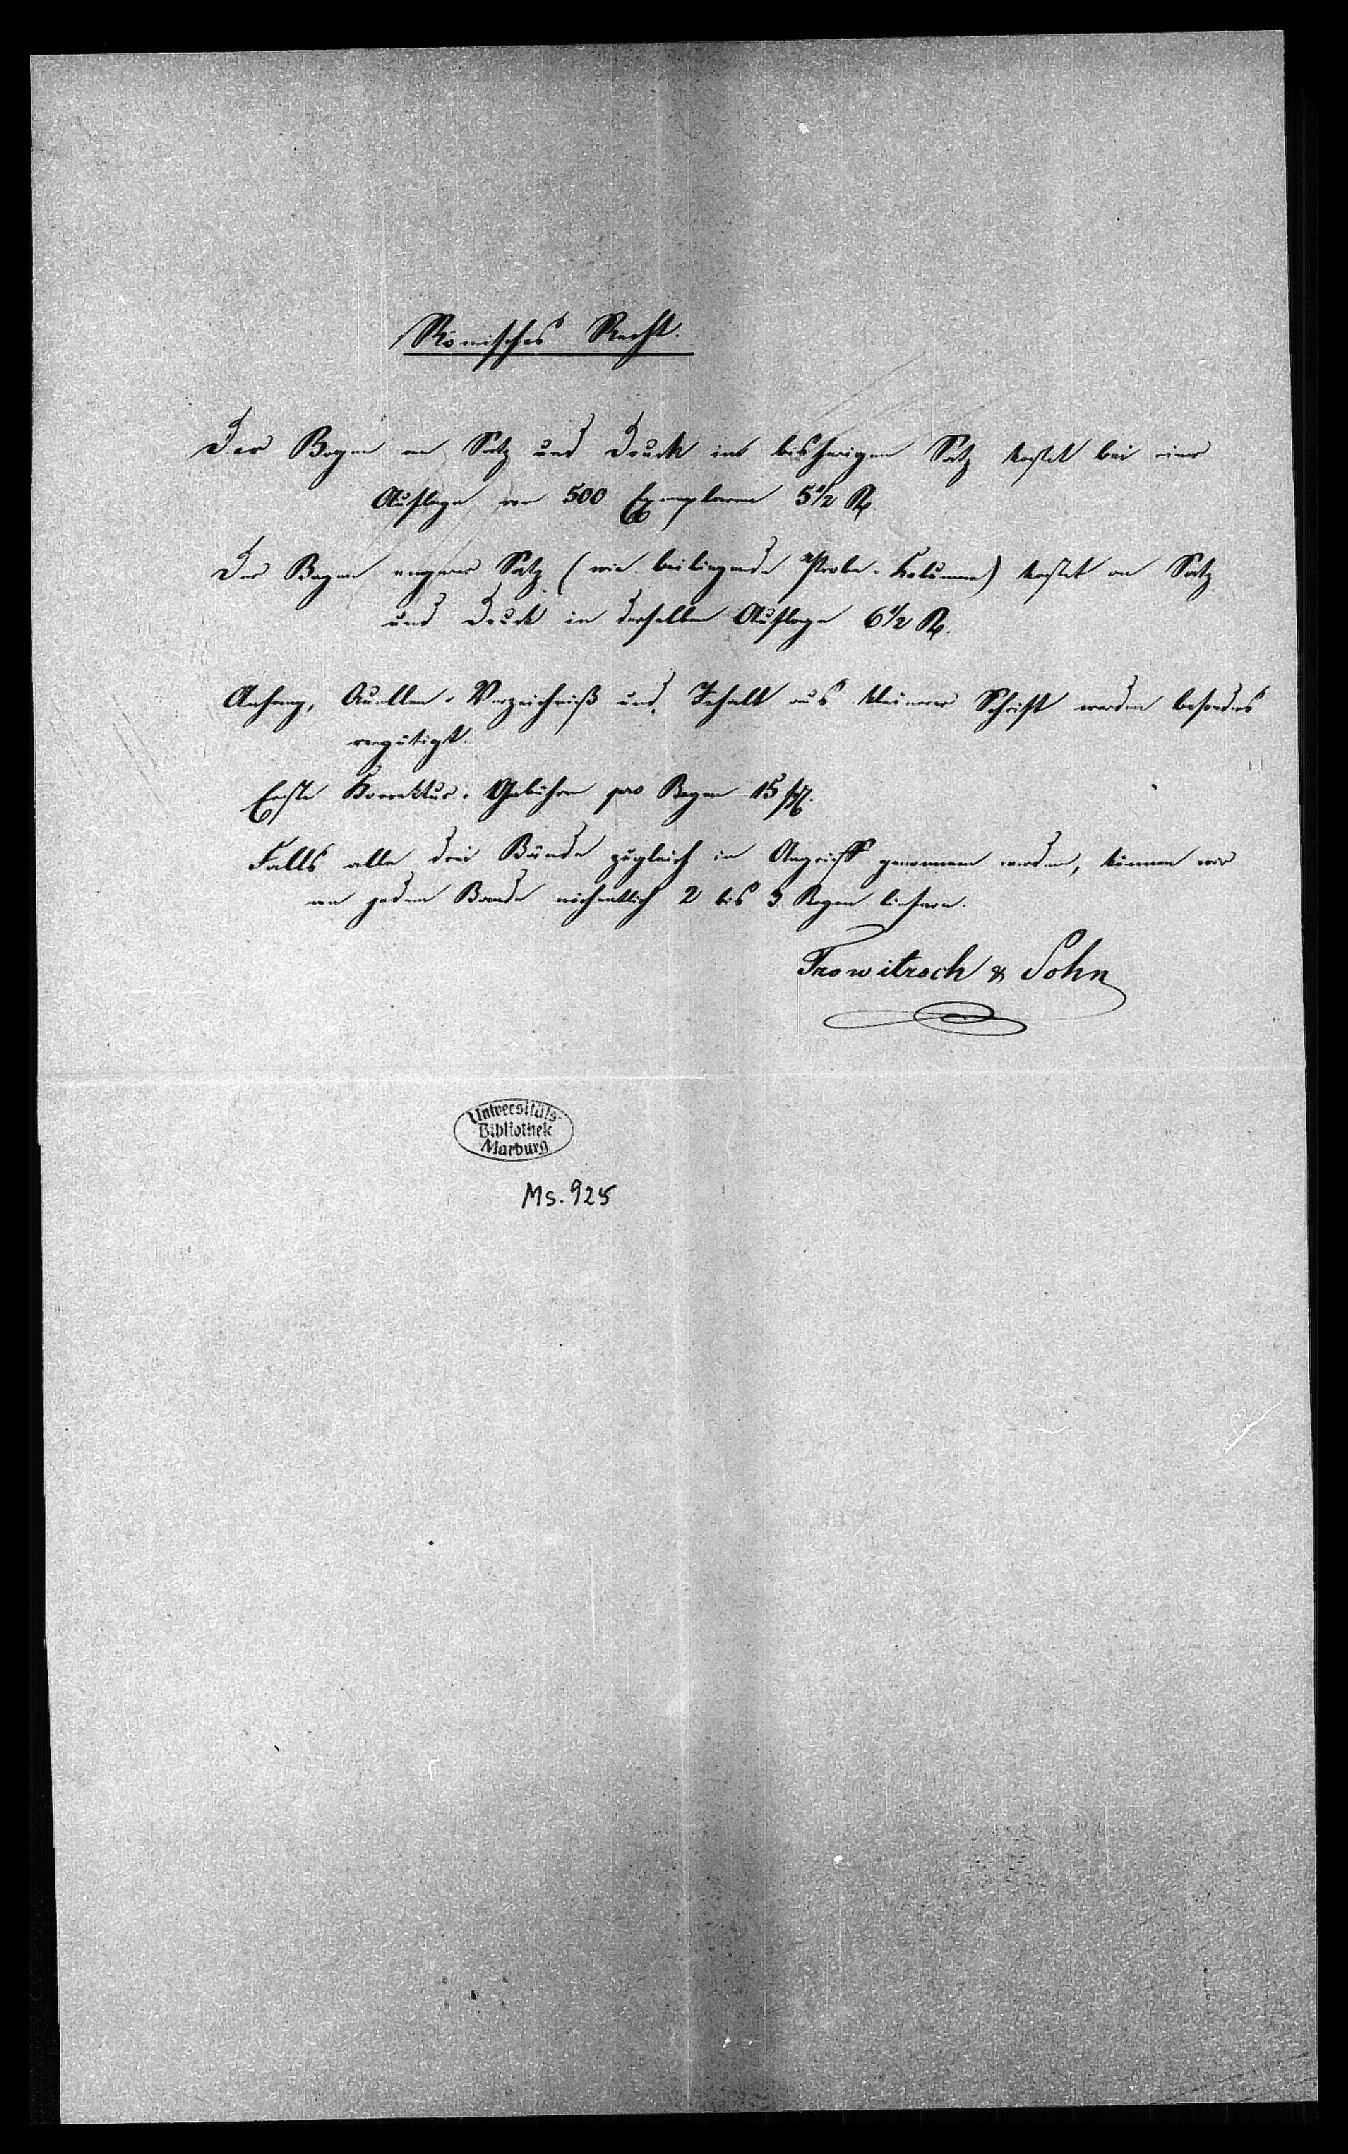 Römisches Recht.
Der Bogen an Satz und Druck im bisherigen Satz kostet bei einer
Auflage von 500 Exemplaren 5½ Rℓ.
Der Bogen engerer Satz (wie beiliegende Probe-Kolumne) kostet an Satz
und Druck in derselben Auflage 6½ Rℓ.
Anhang, Quellen-Verzeichniß und Inhalt aus kleinerer Schrift werden besonders
vergütigt.
Erste Korrektur-Gebühren pro Bogen 15 sgr.
Falls alle drei Bände zugleich in Angriff genommen werden, können wir
an jedem Bande wöchentlich 2 bis 3 Bogen liefern.
Trowitzsch & Sohn
Universitäts-
Bibliothek
Marburg
Ms. 925